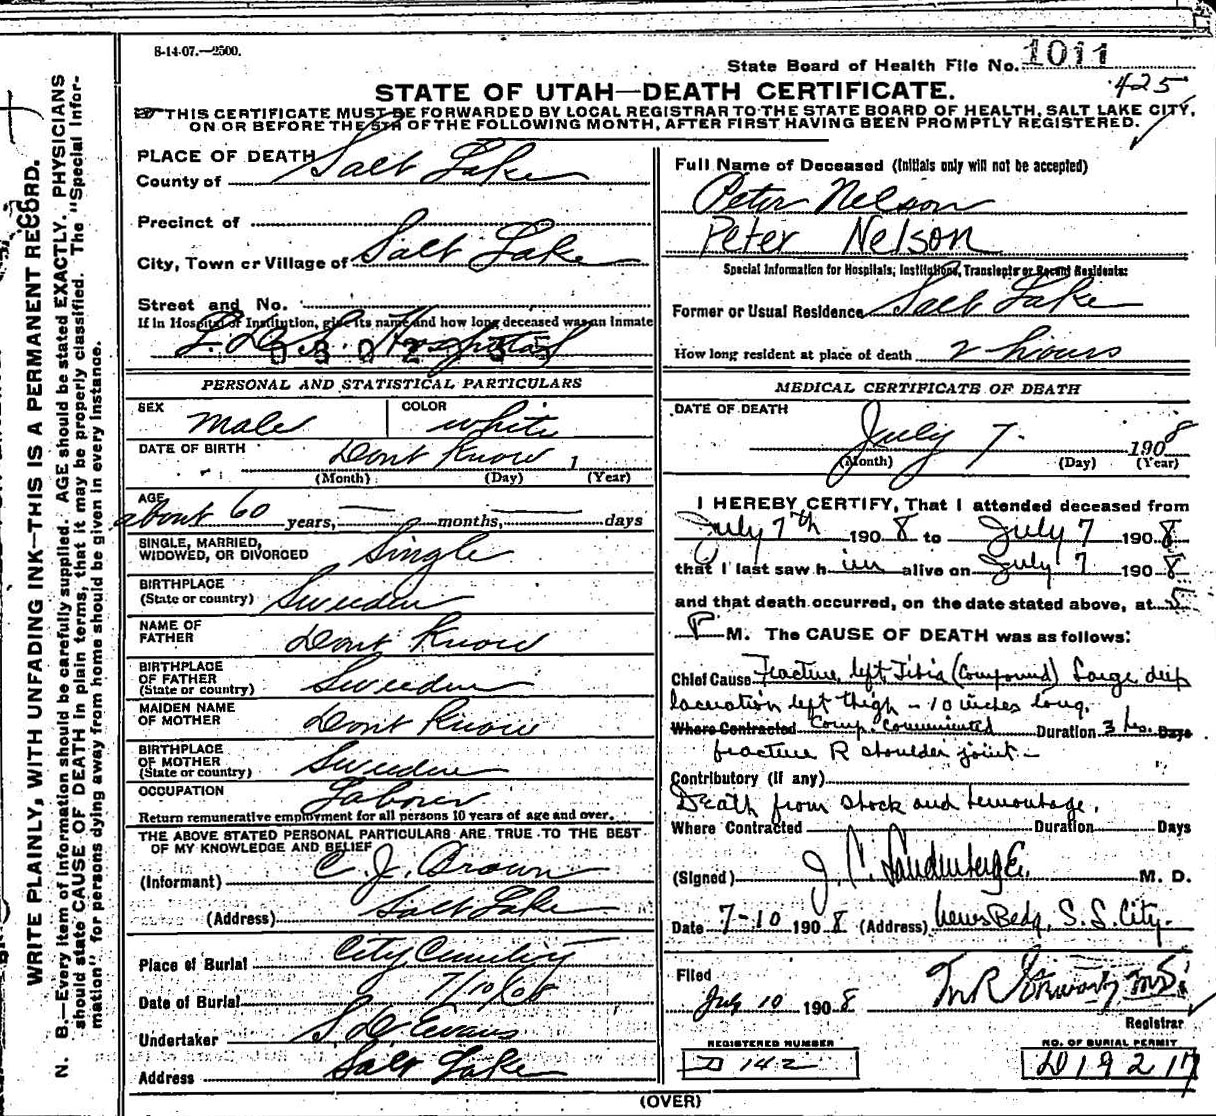 8-14-07.—2500.
State Board of Health File No. 1011
425
STATE OF UTAH—DEATH CERTIFICATE.
THIS CERTIFICATE MUST BE FORWARDED BY LOCAL REGISTRAR TO THE STATE BOARD OF HEALTH, SALT LAKE CITY,
ON OR BEFORE THE 5TH OF THE FOLLOWING MONTH, AFTER FIRST HAVING BEEN PROMPTLY REGISTERED.
WRITE PLAINLY, WITH UNFADING INK—THIS IS A PERMANENT RECORD.
N. B.—Every item of information should be carefully supplied. AGE should be stated EXACTLY. PHYSICIANS
should state CAUSE OF DEATH in plain terms, that it may be properly classified. The "Special Infor-
mation" for persons dying away from home should be given in every instance.
PLACE OF DEATH
County of Salt Lake
Precinct of
City, Town or Village of Salt Lake
Street and No.
If in Hospital or Institution, give its name and how long deceased was an Inmate
L. D. S. Hospital
PERSONAL AND STATISTICAL PARTICULARS
SEX male COLOR white
DATE OF BIRTH Dont Know 1
(Month) (Day) (Year)
AGE about 60 years, — months, — days
SINGLE, MARRIED,
WIDOWED, OR DIVORCED Single
BIRTHPLACE
(State or country) Sweeden
NAME OF
FATHER Dont Know
BIRTHPLACE
OF FATHER
(State or country) Sweeden
MAIDEN NAME
OF MOTHER Dont Know
BIRTHPLACE
OF MOTHER
(State or country) Sweeden
OCCUPATION Laborer
Return remunerative employment for all persons 10 years of age and over.
THE ABOVE STATED PERSONAL PARTICULARS ARE TRUE TO THE BEST
OF MY KNOWLEDGE AND BELIEF
(Informant) C. J. Brown
(Address) Salt Lake
Place of Burial City Cemetery
Date of Burial 7/10/08
Undertaker S. D. Evans
Address Salt Lake
Full Name of Deceased (Initials only will not be accepted)
Peter Nelson
Peter Nelson
Special Information for Hospitals, Institutions, Transients or Recent Residents:
Former or Usual Residence Salt Lake
How long resident at place of death 2 hours
MEDICAL CERTIFICATE OF DEATH
DATE OF DEATH
July 7. 1908
(Month) (Day) (Year)
I HEREBY CERTIFY, That I attended deceased from
July 7th 1908 to July 7 1908
that I last saw him alive on July 7 1908
and that death occurred, on the date stated above, at 5
P M. The CAUSE OF DEATH was as follows:
Chief Cause Fracture left Tibia (Compound) Large deep
laceration left thigh - 10 inches long.
Where Contracted Comp. comminuted Duration 3 hrs. Days
fracture R shoulder joint -
Contributory (if any)
Death from shock and hemorrhage.
Where Contracted Duration Days
(Signed) J. C. Landenberger M. D.
Date 7-10 1908 (Address) News Bldg, S. L. City.
Filed
July 10 1908
Registrar
REGISTERED NUMBER
D 142
NO. OF BURIAL PERMIT
D 19217
(OVER)